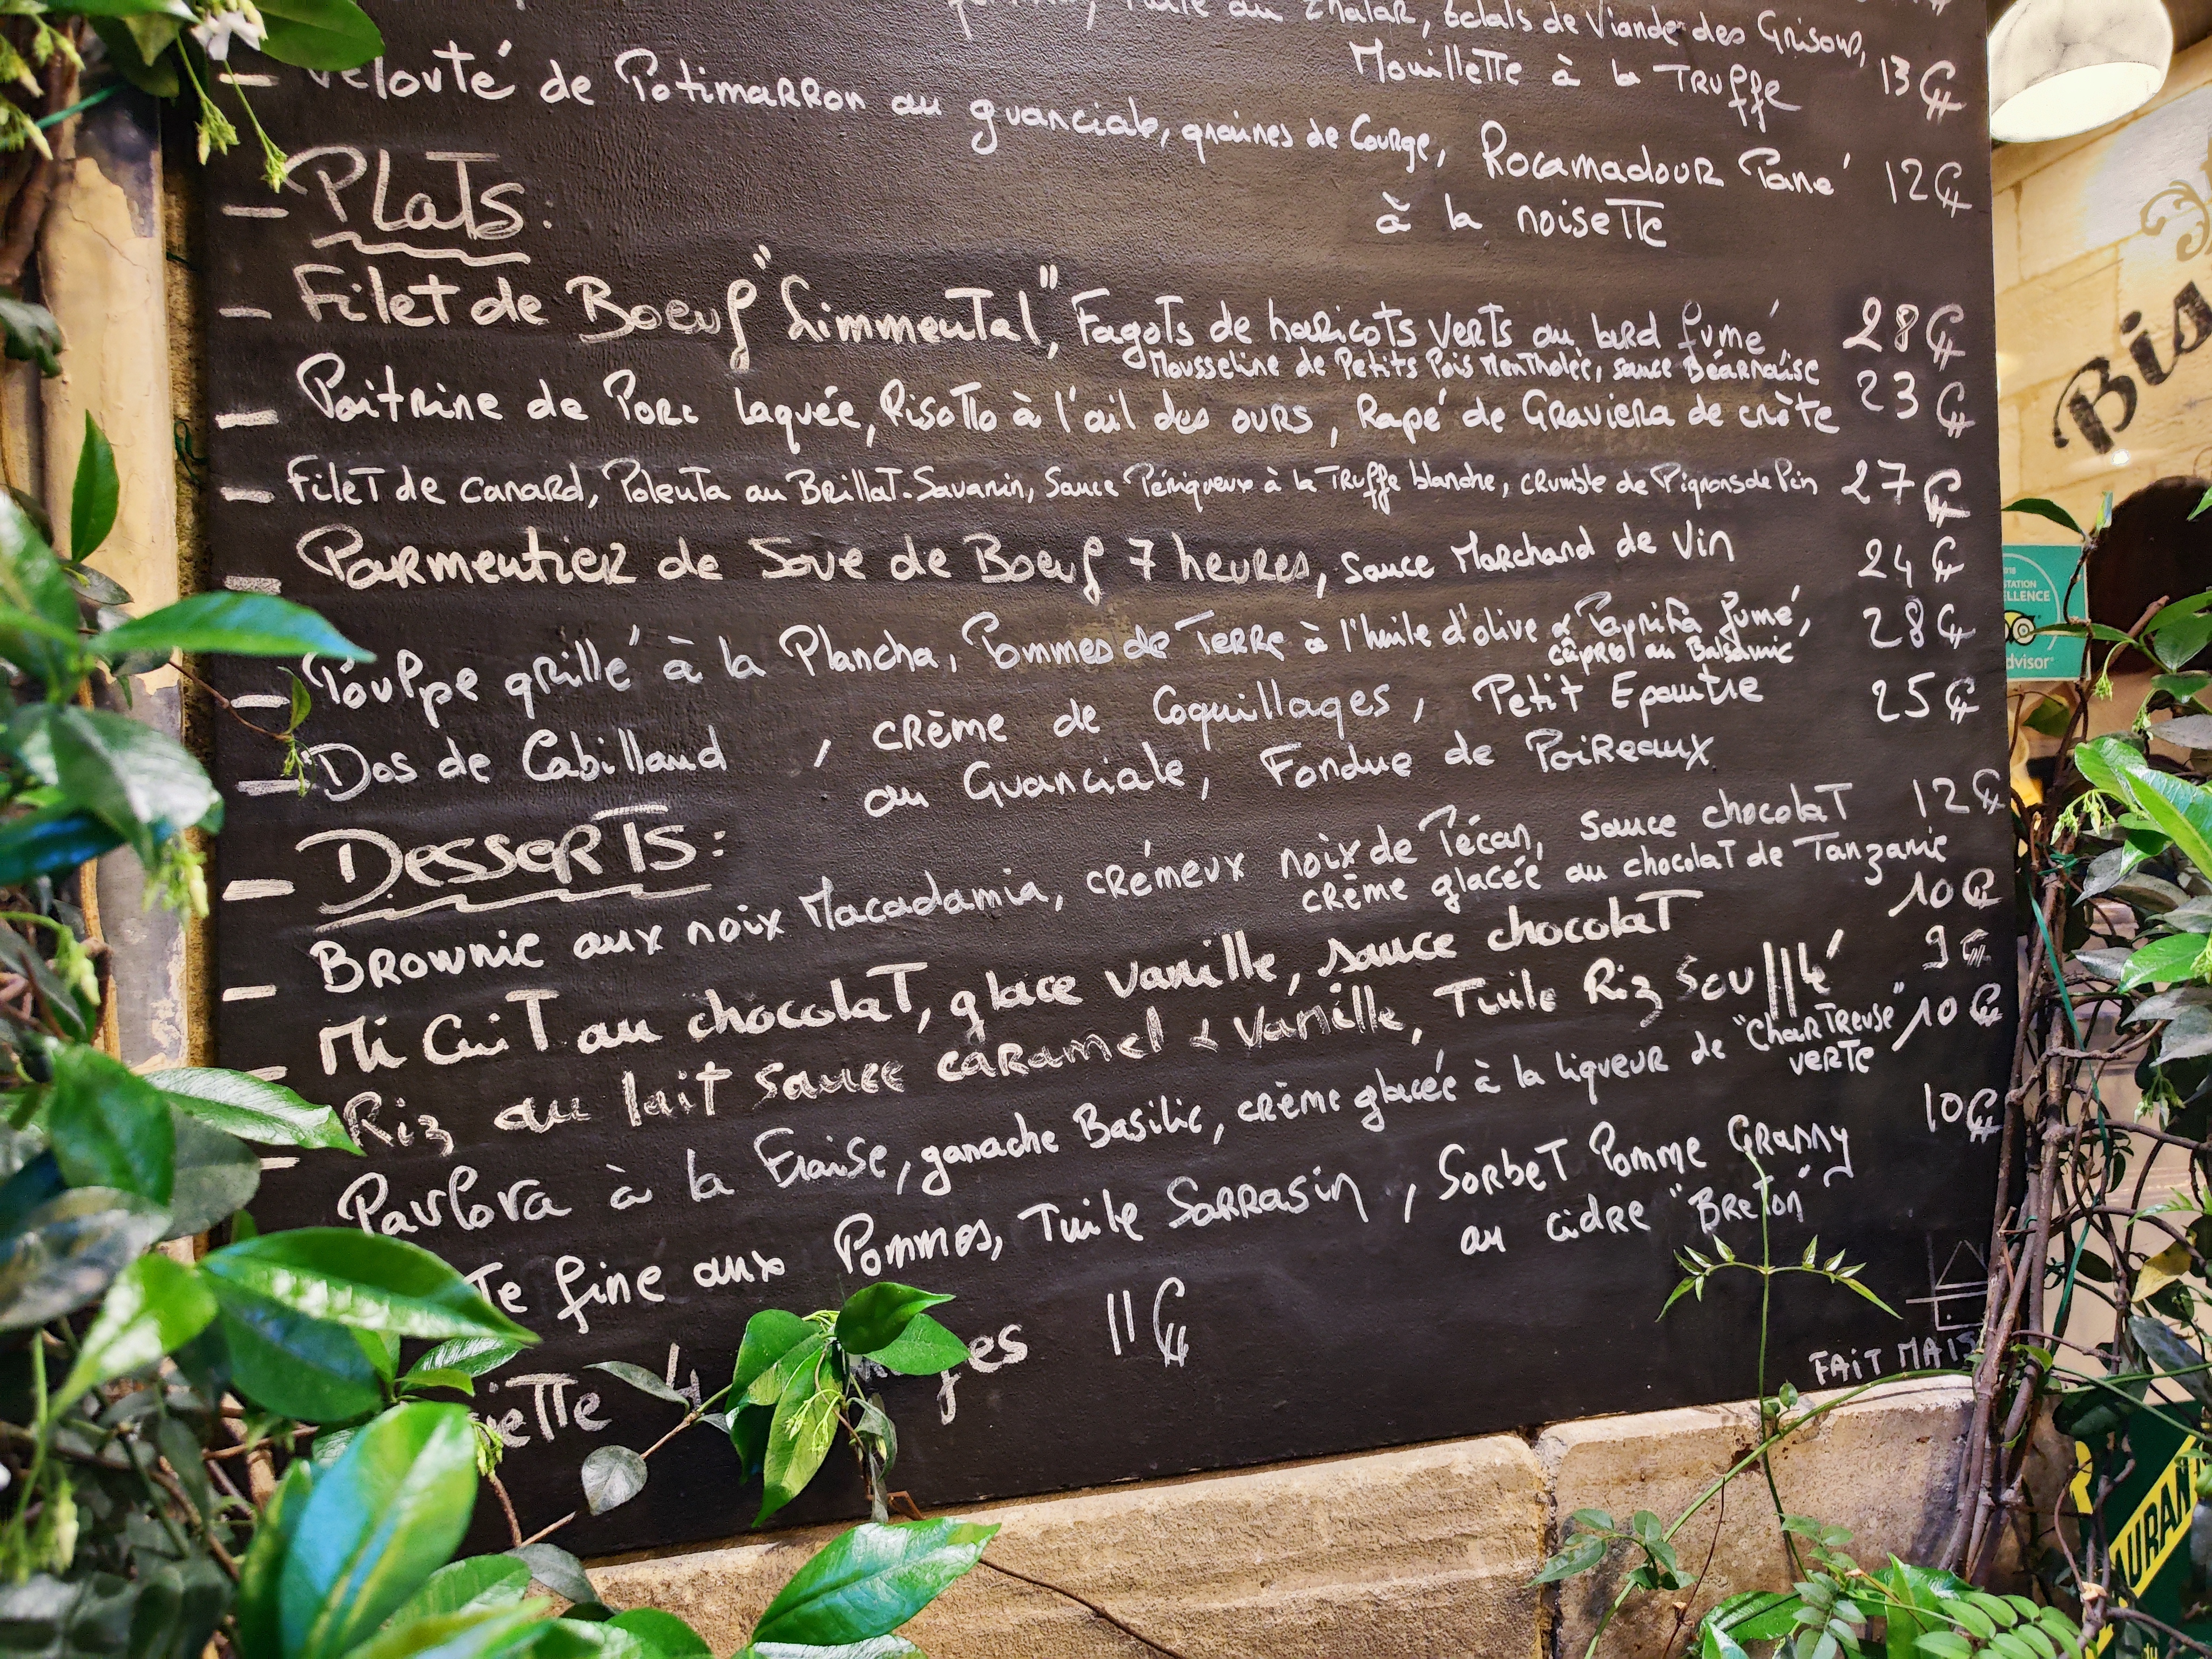 au Thalar, éclats de Viande des Grisons,
Mouillette à la Truffe 13€
- Velouté de Potimarron au guanciale, graines de Courge, Rocamadour Pané 12€
à la noisette
- Plats:
- Filet de Boeuf "Simmental", Fagots de haricots verts au lard fumé 28€
Mousseline de Petits Pois Mentholée, sauce Béarnaise
- Poitrine de Porc laquée, Risotto à l'ail des ours, Rapé de Graviera de crète 23€
- Filet de canard, Polenta au Brillat-Savarin, Sauce Périgueux à la Truffe blanche, crumble de Pignons de Pin 27€
- Parmentier de Joue de Boeuf 7 heures, sauce Marchand de Vin 24€
- Poulpe grillé à la Plancha, Pommes de Terre à l'huile d'olive & Paprika fumé, 28€
câpres au Balsamic
- Dos de Cabillaud, crème de Coquillages, Petit Epeautre 25€
au Guanciale, Fondue de Poireaux
- Desserts:
- Brownie aux noix Macadamia, crémeux noix de Pécan, sauce chocolat 12€
crème glacée au chocolat de Tanzanie
- Mi Cuit au chocolat, glace vanille, sauce chocolat 10€
- Riz au lait sauce caramel & Vanille, Tuile Riz Soufflé 9€
Pavlova à la Fraise, ganache Basilic, crème glacée à la liqueur de "Chartreuse" 10€
verte
te fine aux Pommes, Tuile Sarrasin, Sorbet Pomme Granny 10€
au cidre "Breton"
iette 4 ges 11€
FAIT MAIS
Bis
STATION
ELLENCE
dvisor
AURAN